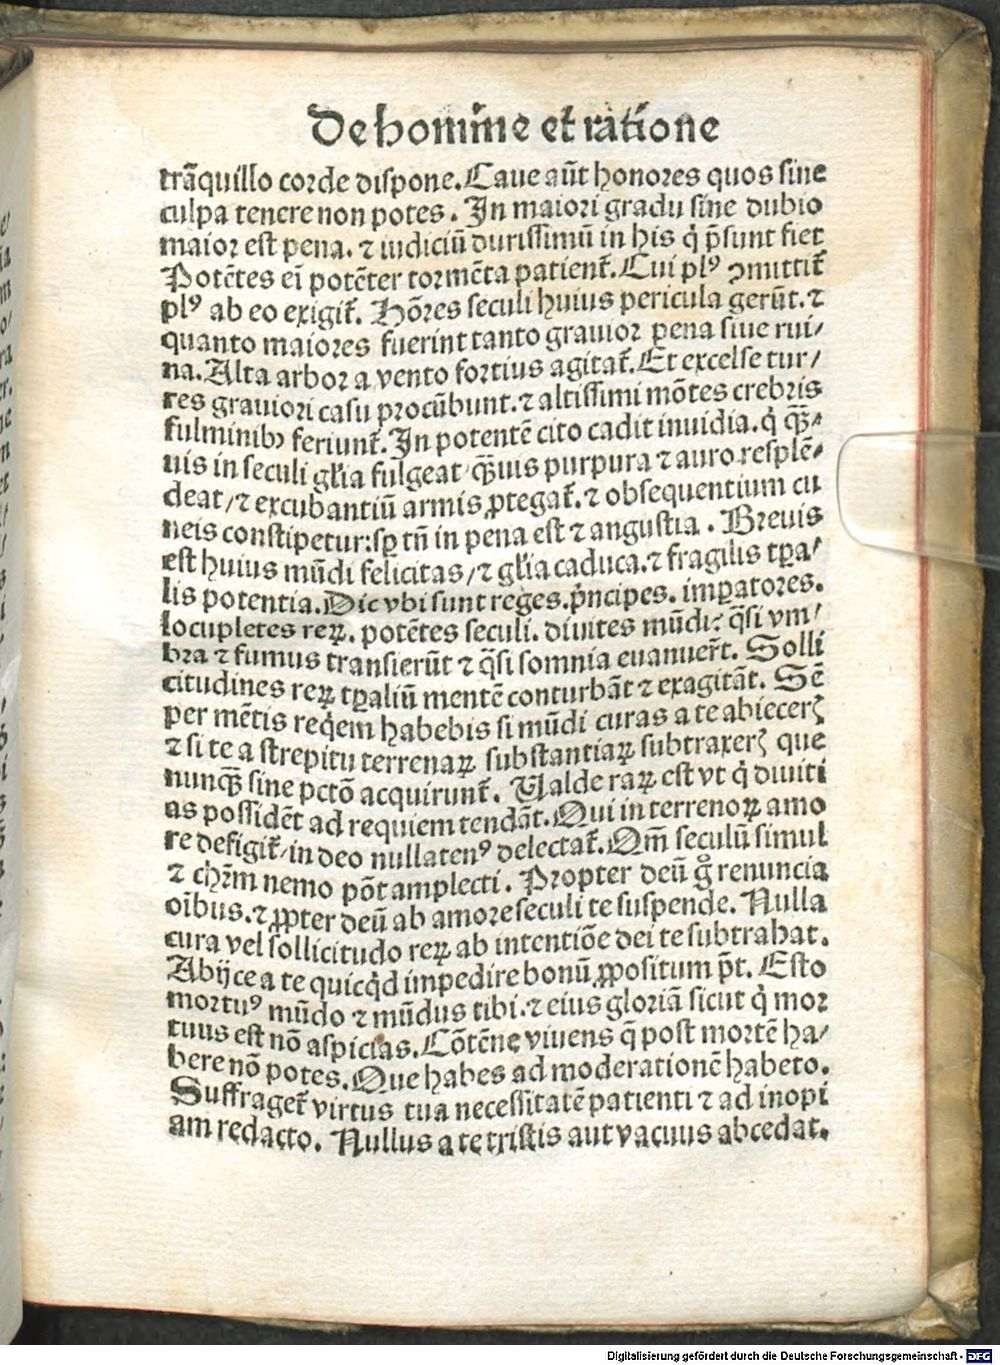 De homine et ratione
trãquillo corde dispone. Caue aũt honores quos sine
culpa tenere non potes. In maiori gradu sine dubio
maior est pena. ⁊ iudiciũ durissimũ in his q̇ p̃sunt fiet
Potẽtes eĩ potẽter tormẽta patient̃. Cui plꝰ ꝯmittit̃
plꝰ ab eo exigit̃. Hõres seculi huius pericula gerũt. ⁊
quanto maiores fuerint tanto grauior pena siue rui/
na. Alta arbor a vento fortius agitat̃. Et excelse tur/
res grauiori casu procũbunt. ⁊ altissimi mõtes crebris
fulminibꝫ feriunt̃. In potentẽ cito cadit inuidia. q̇ q̃ꝫ/
uis in seculi gl̃ia fulgeat q̃ꝫuis purpura ⁊ auro resplẽ/
deat/ ⁊ excubantiũ armis ꝓtegat̃. ⁊ obsequentium cu
neis constipetur: sꝑ tñ in pena est ⁊ angustia. Breuis
est huius mũdi felicitas/ ⁊ gl̃ia caduca. ⁊ fragilis tꝑa/
lis potentia. Dic vbi sunt reges. p̃ncipes. imꝑatores.
locupletes reꝝ. potẽtes seculi. diuites mũdi: q̃si vm/
bra ⁊ fumus transierũt ⁊ q̃si somnia euanuer̃t. Solli
citudines reꝝ tꝑaliũ mentẽ conturbãt ⁊ exagitãt. Sẽ
per mẽtis req̇em habebis si mũdi curas a te abiecerꝭ
⁊ si te a strepitu terrenaꝝ substantiaꝝ subtraxerꝭ que
nunq̃ꝫ sine pctõ acquirunt̃. Valde raꝝ est vt q̇ diuiti
as possidẽt ad requiem tendãt. Qui in terrenoꝝ amo
re defigit̃/ in deo nullatenꝰ delectat̃. Om̃ seculũ simul
⁊ chr̃m nemo põt amplecti. Propter deũ g̊ renuncia
oĩbus. ⁊ ꝓpter deũ ab amore seculi te suspende. Nulla
cura vel sollicitudo reꝝ ab intentiõe dei te subtrahat.
Abijce a te quicq̇d impedire bonũ ꝓpositum p̃t. Esto
mortuꝰ mũdo ⁊ mũdus tibi. ⁊ eius gloriã sicut q̇ mor
tuus est nõ aspicias. Cõtẽne viuens q̃ post mortẽ ha/
bere nõ potes. Que habes ad moderationẽ habeto.
Suffraget̃ virtus tua necessitatẽ patienti ⁊ ad inopi
am redacto. Nullus a te tristis aut vacuus abcedat.
Digitalisierung gefördert durch die Deutsche Forschungsgemeinschaft - DFG